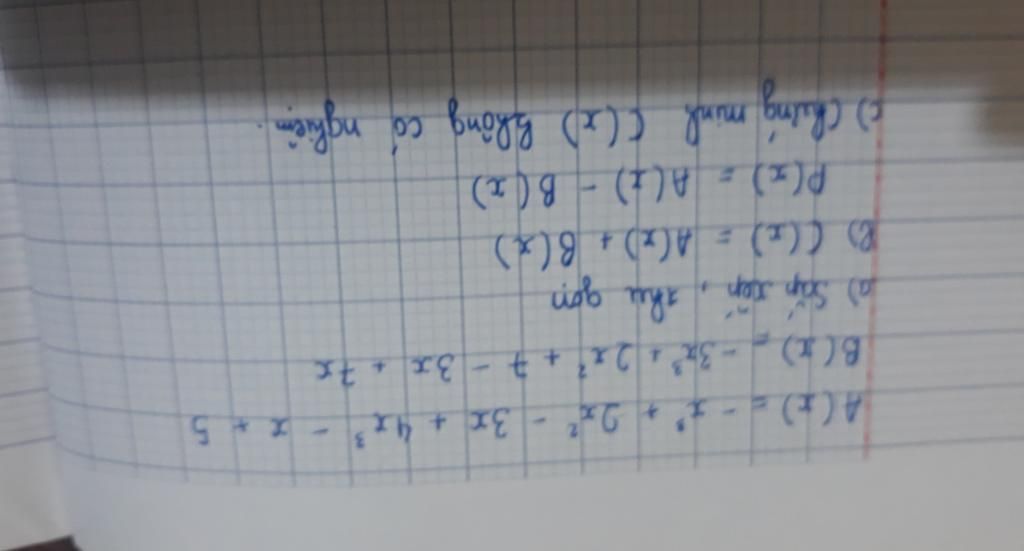 A(x) = - x³ + 2x² - 3x + 4x³ - x + 5
B(x) = - 3x³ + 2x² + 7 - 3x + 7x
a) Sắp xếp, thu gọn
b) C(x) = A(x) + B(x)
P(x) = A(x) - B(x)
c) Chứng minh C(x) không có nghiệm.